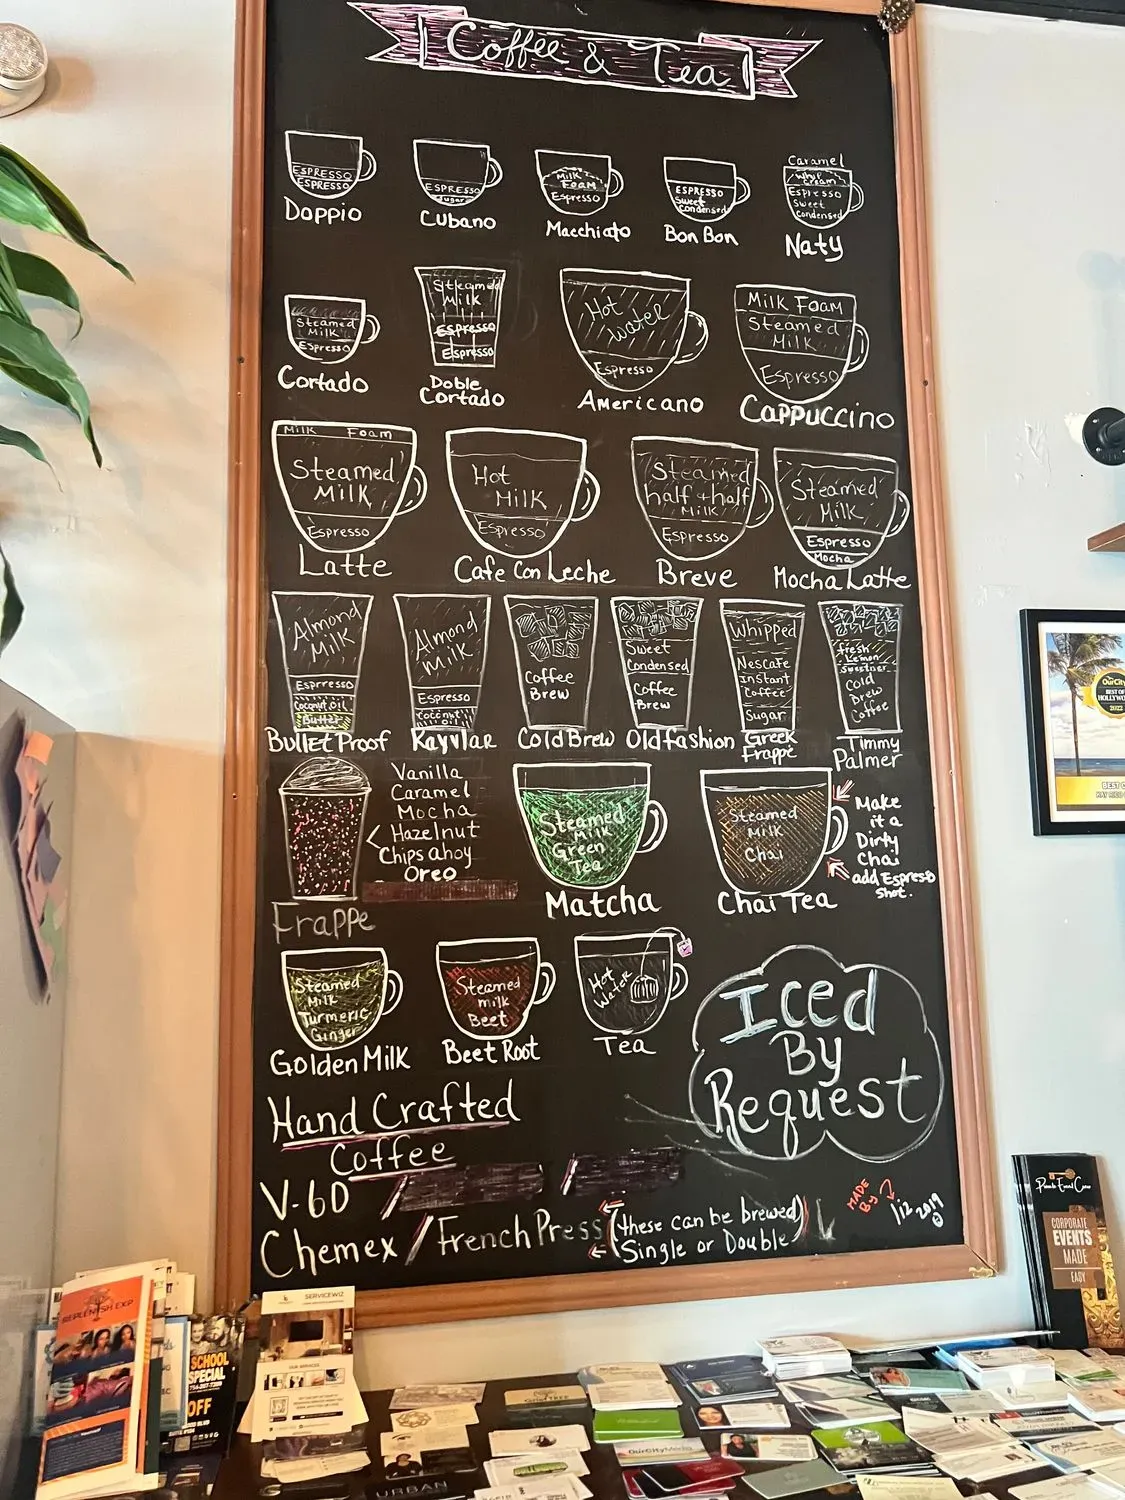 Coffee & Tea
ESPRESSO
ESPRESSO
Doppio
ESPRESSO
Sugar
Cubano
Milk
Foam
Espresso
Macchiato
ESPRESSO
Sweet
Condensed
Bon Bon
Caramel
Whip
Cream
Espresso
Sweet
Condensed
Naty
Steamed
Milk
Espresso
Cortado
Steamed
Milk
Espresso
Espresso
Doble
Cortado
Hot
Water
Espresso
Americano
Milk Foam
Steamed
Milk
Espresso
Cappuccino
Milk Foam
Steamed
Milk
Espresso
Latte
Hot
Milk
Espresso
Cafe Con Leche
Steamed
half + half
Milk
Espresso
Breve
Steamed
Milk
Espresso
Mocha
Mocha Latte
Almond
Milk
Esprresso
Coconut oil
Butter
Bullet Proof
Almond
Milk
Espresso
Coconut
Oil
Kayvlar
Coffee
Brew
Cold Brew
Sweet
Condensed
Coffee
Brew
Old fashion
Whipped
Nescafe
Instant
Coffee
Sugar
Greek
Frappe
fresh
Lemon
Sweetner
Cold
Brew
Coffee
Timmy
Palmer
Vanilla
Caramel
Mocha
Hazelnut
Chips ahoy
Oreo
Frappe
Steamed
Milk
Green
Tea
Matcha
Steamed
Milk
Chai
Chai Tea
Make
it a
Dirty
Chai
add Espresso
Shot.
Steamed
Milk
Turmeric
Ginger
Golden Milk
Steamed
milk
Beet
Beet Root
Hot
Water
Tea
Iced
By
Request
Hand Crafted
Coffee
V-60 /
Chemex / French Press (these can be brewed)
Single or Double
MADE
By
liz 2019
OurCity
BEST OF
HOLLYWOOD
2022
CORPORATE
EVENTS
MADE
EASY
REPLENISH EXP
SCHOOL
SPECIAL
OFF
SERVICEWIZ
OUR SERVICES
OurCityMedia
URBAN